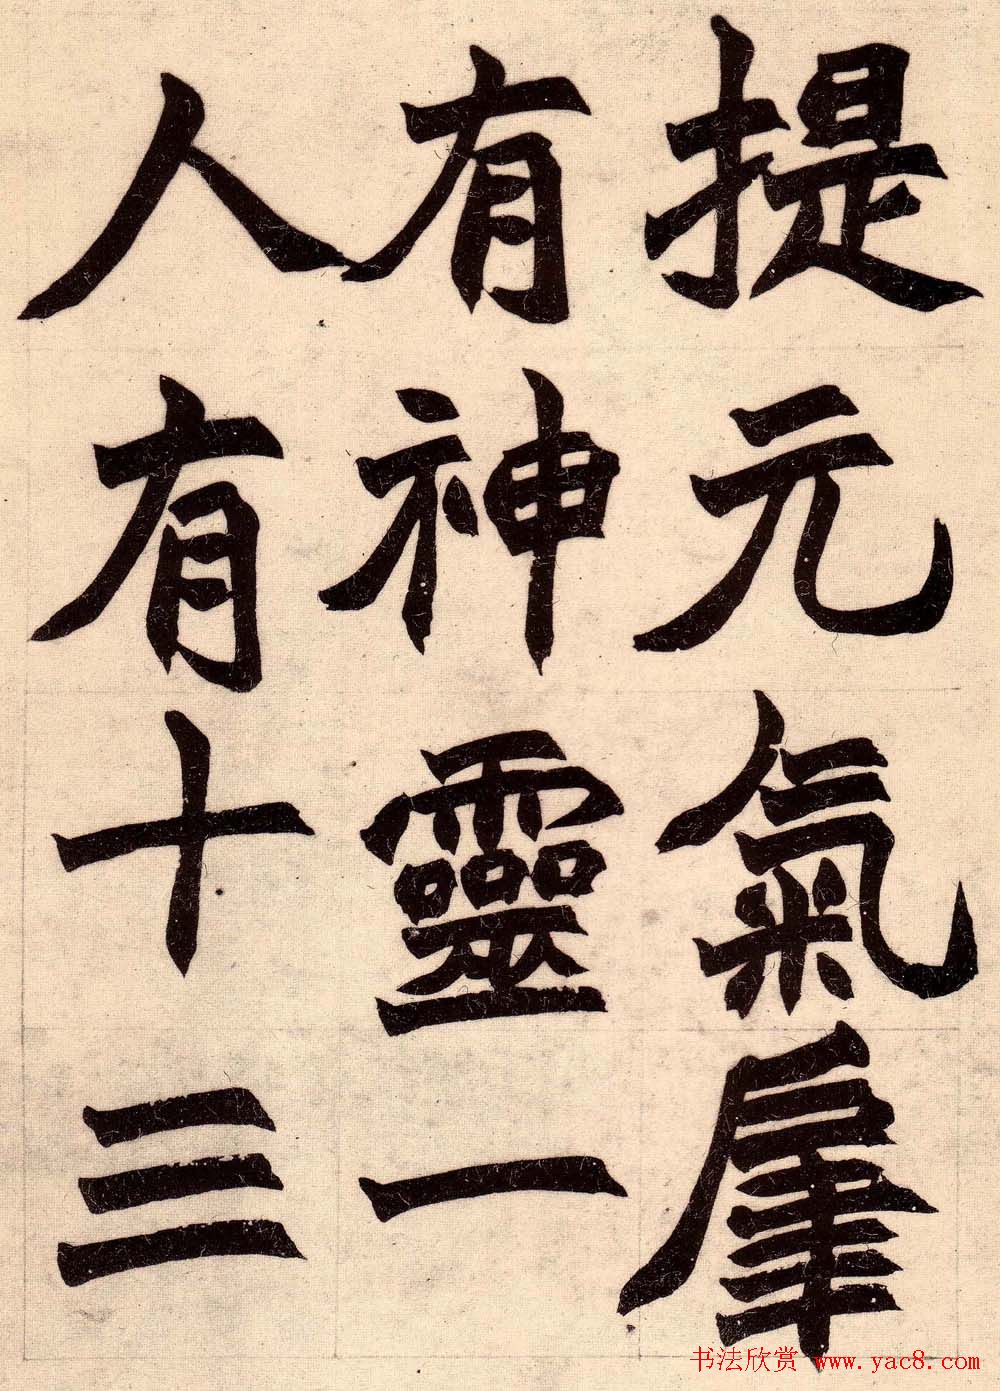 提元氣肁
有神靈一
人有十三
书法欣赏 www.yac8.com